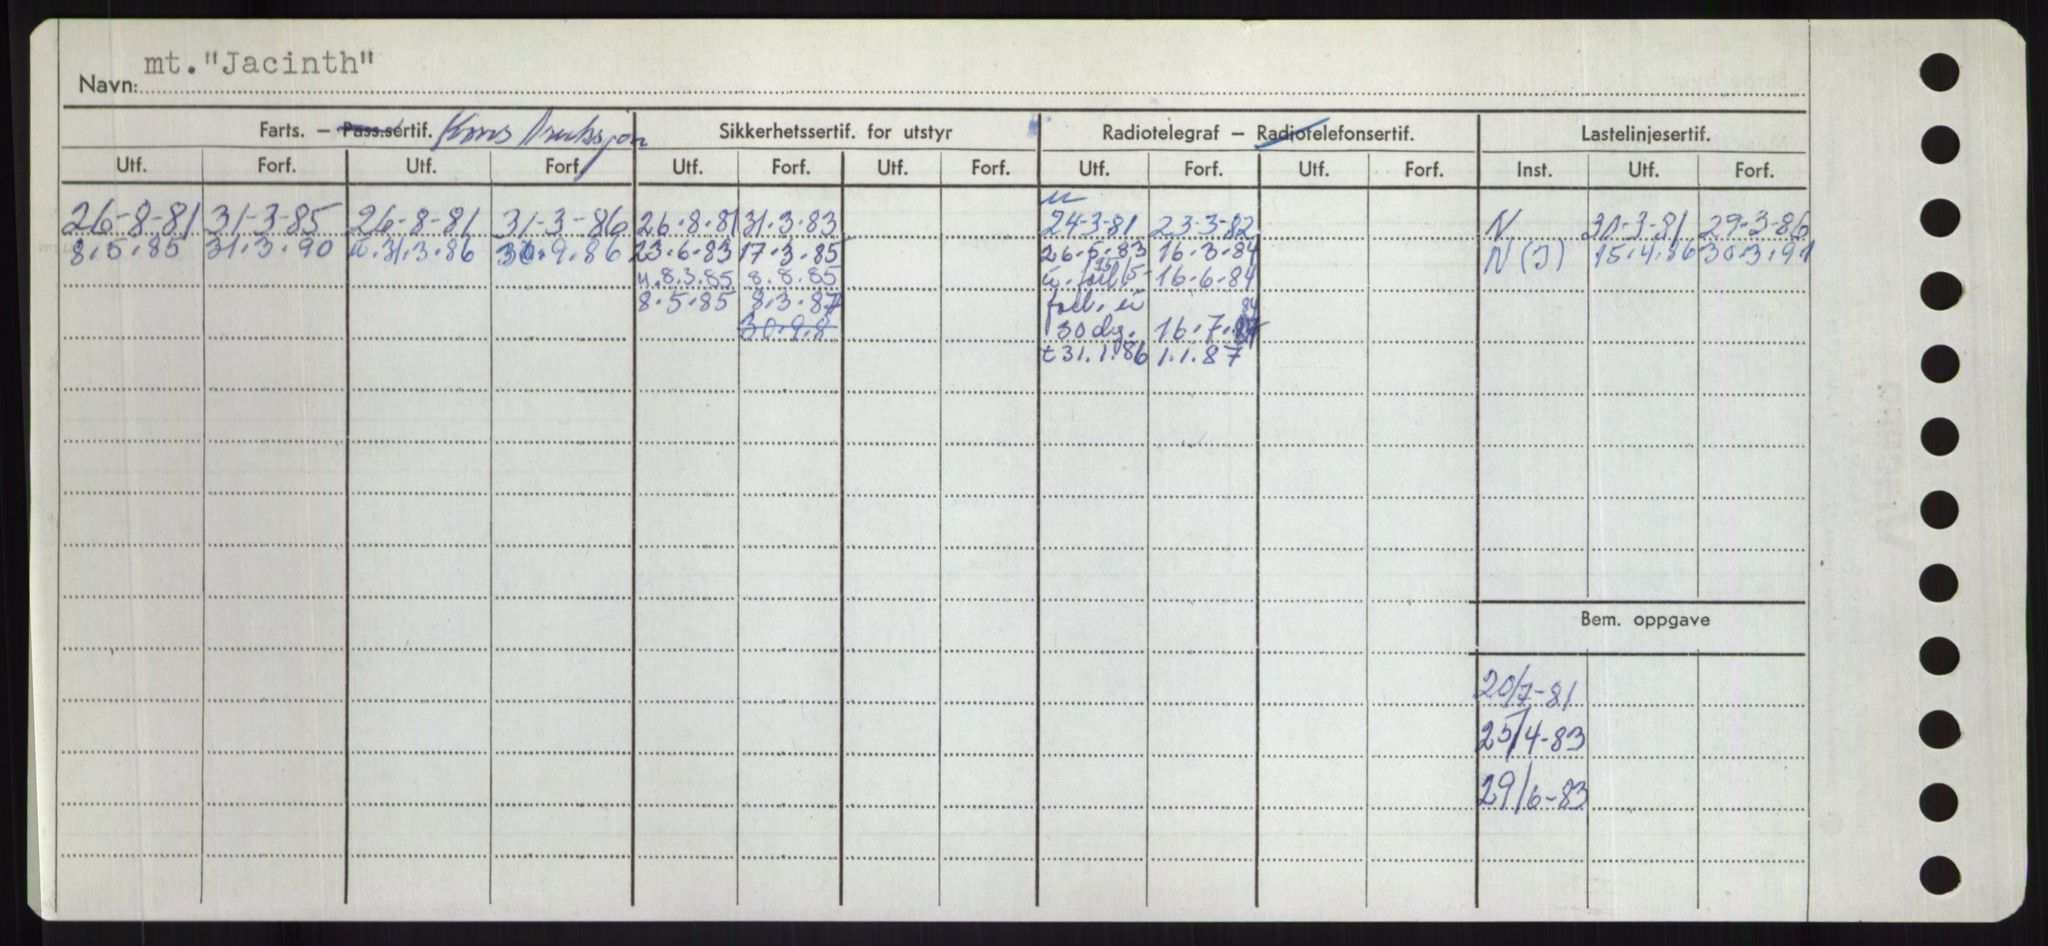 mt. "Jacinth"
Navn:
Farts. – Pass.sertif. Kons Sikkerhetssertif. for utstyr Radiotelegraf – Radiotelefonsertif. Lastelinjesertif.
Utf. Forf. Utf. Forf. Utf. Forf. Utf. Forf. Utf. Forf. Utf. Forf. Inst. Utf. Forf.
26-8-81 31-3-85 26-8-81 31-3-86 26.8.81 31.3.83 24-3-81 23-3-82 N 30-3-81 29-3-86
8.5.85 31.3.90 31.3.86 30.9.86 23.6.83 17.3.85 26.5.83 16.3.84 N (I) 15.4.86 30.3.91
u.8.3.85 8.8.85 16-6-84
8.5.85 8.3.87 84
30.9.8 30 dg. 16.7.84
t 31.1.86 1.1.87
Bem. oppgave
20/7-81
25/4-83
29/6-83